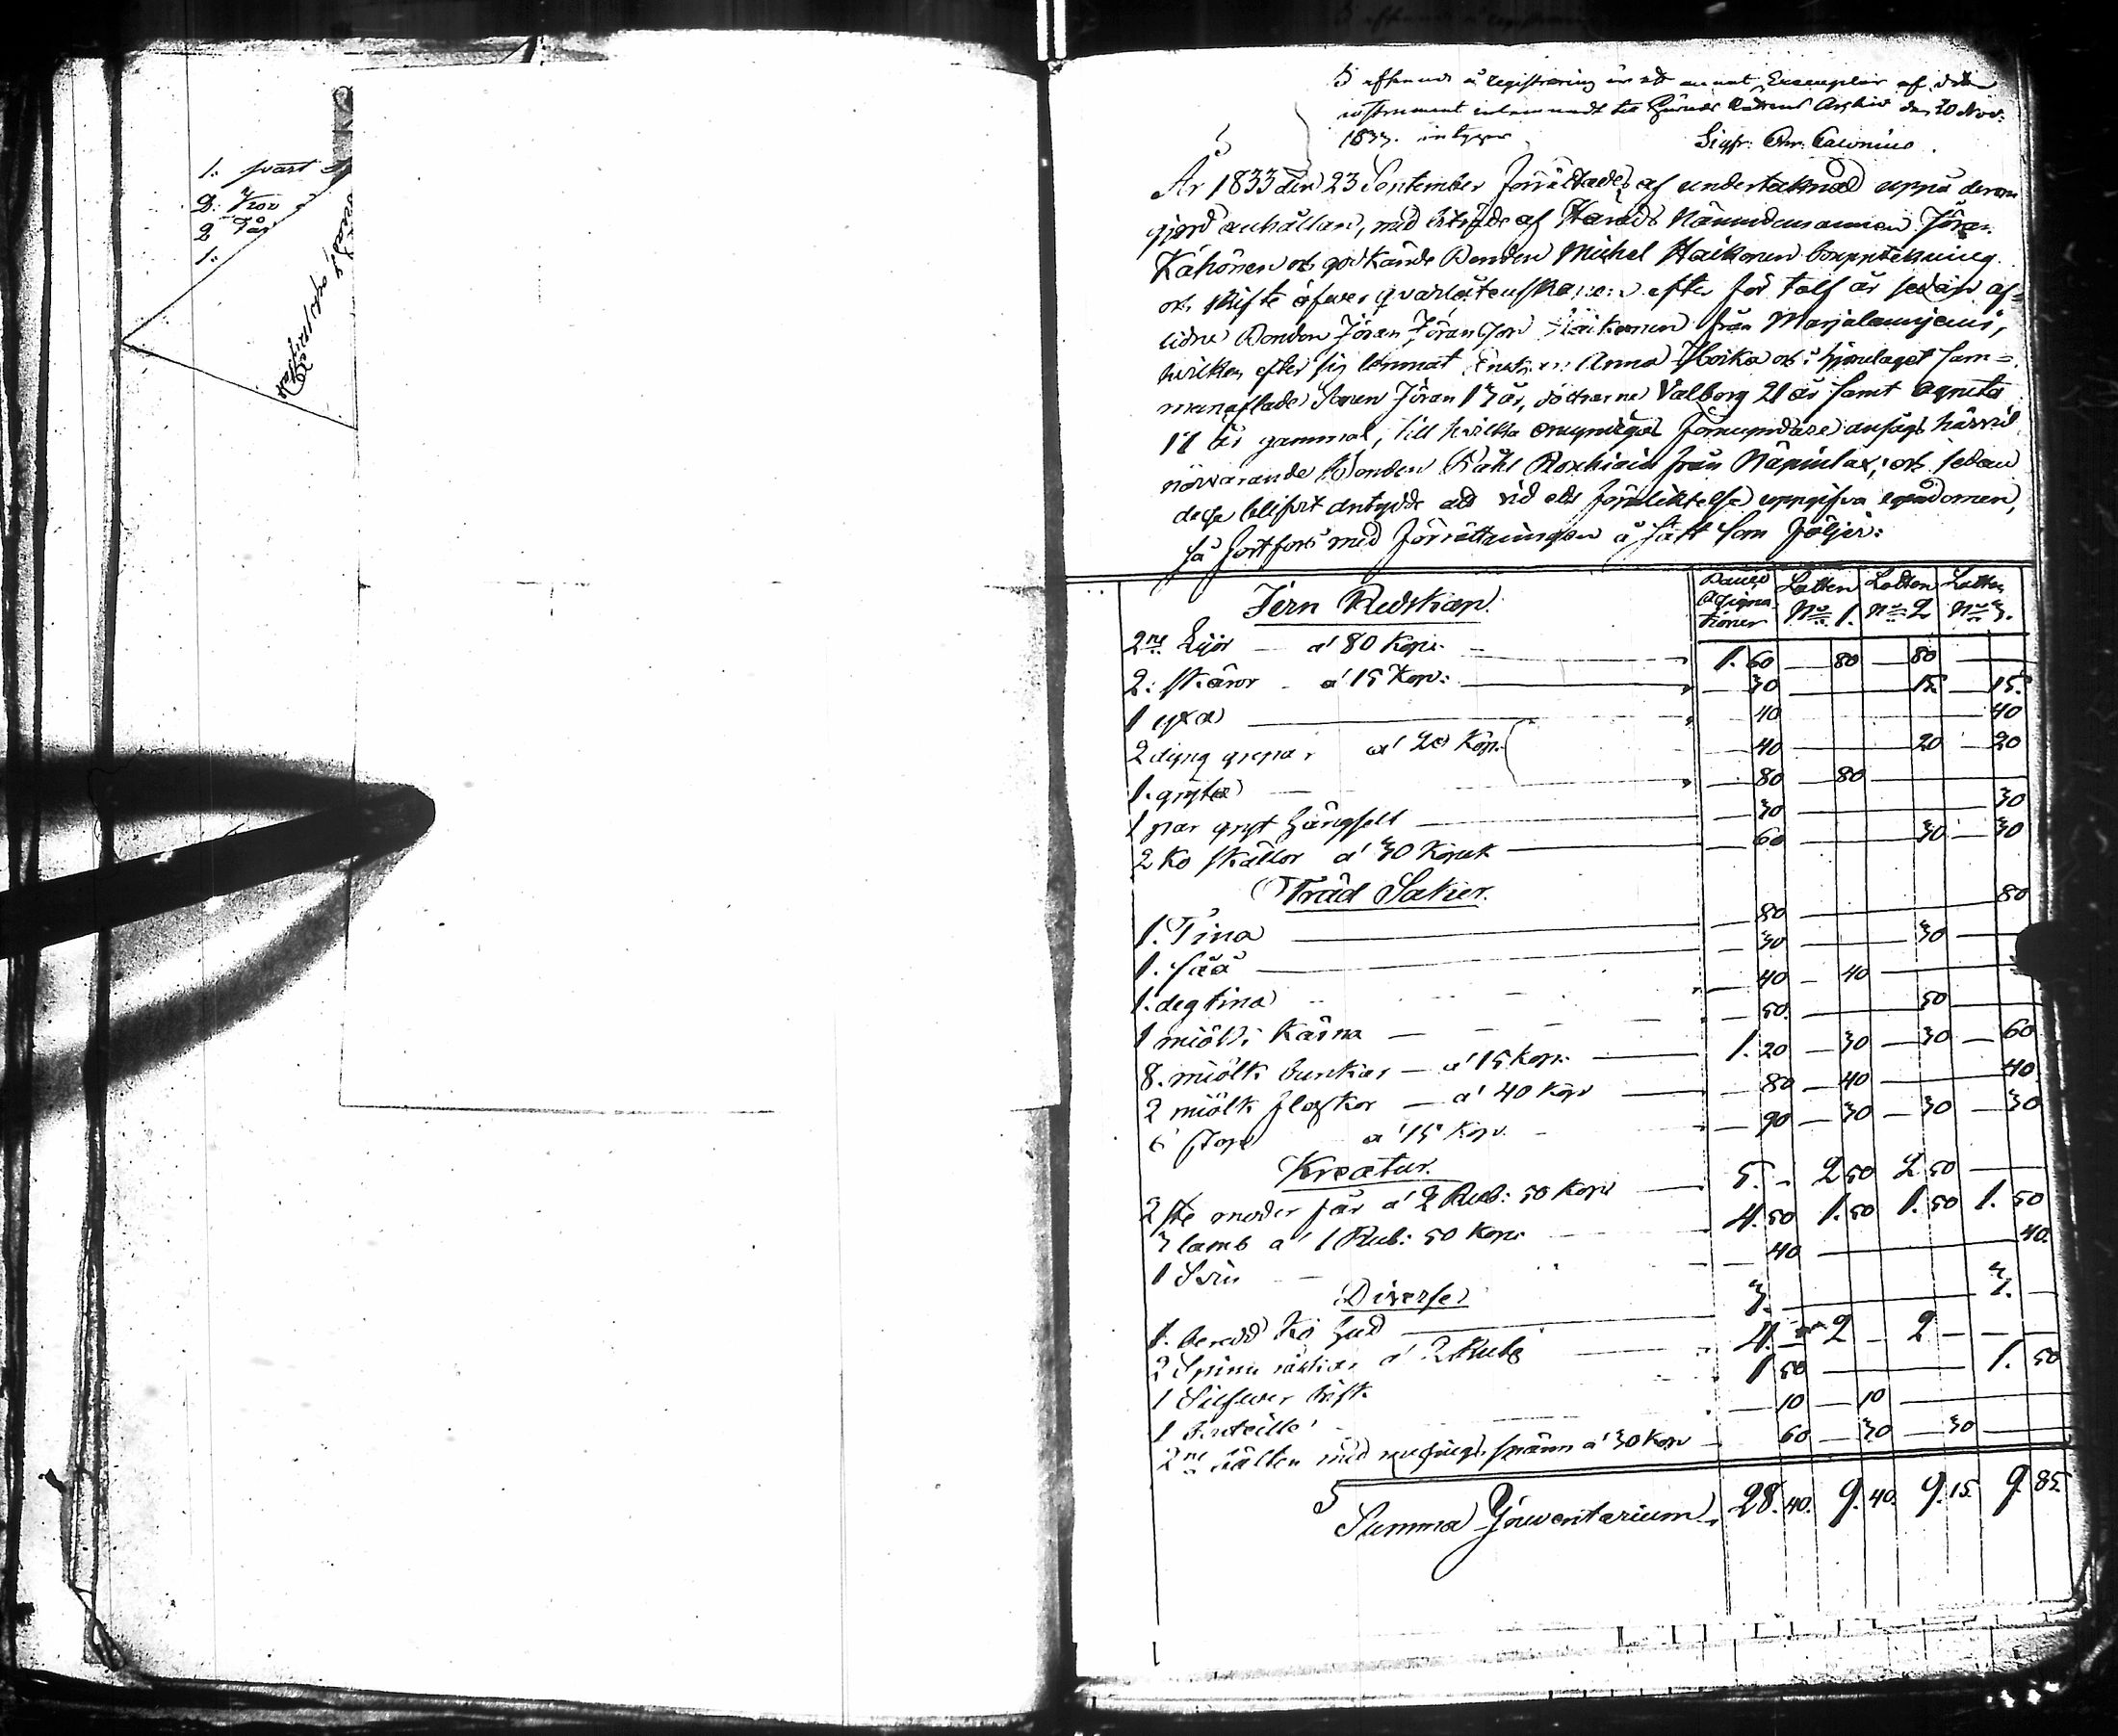 1. svart
2.
2 Får
1.
I afseende å registrering är ett annat Exemplar af detta
instrument inlemnadt till Härads Rättens Arshiv den 30 Nov.
1833. intygar
Sigfr:
År 1833 den 23 September förrättades af undertecknad uppå derom
gjord anhållan, med biträde af Härads Nämndemannen Jöran
Kähönen och godkände Bonden Michel Haikonen Bouppteckning
och skifte öfwer qvarlåtenskapen efter för tolf år sedan af=
lidne Bonden Jöran Jöransson Haikonen från Marjalaniemi,
hwilken efter sig lemnat Enkan Anna Hoika och i hjonelaget sam=
manaflade Sonen Jöran 13 år, döttrarne Valborg 21 år samt Agneta
17 år gammal, till hwilka omyndigas förmyndare ansågs härvid
närvarande Bonden Påhl från och sedan
desse blifvit antydde att vid eds förpliktelse uppgifva egendomen,
så fortfors med förrättningen å sätt som följer:
Jern Redskap. Banco Assigna- tioner Lotten No 1. Lotten No 2 Lotten No 3.
2ne Lijor a' 80 Kop: 1. 60 80 80
2: skäror a' 15 Kop: 30 15. 15.
1 yxa 40 40
2 dyng grepar a' 20 Kop: 40 20 20
1. gryta 80 80
1 par gryt hängsell 30 30
2 Ko skällor a' 30 Kopek 60 30 30
Träd Saker.
1. Tina 80 80
1. såå 30 30
1. degtina 40 40
1 miölk Kärna 50. 50
8. miölk bunkar a' 15 Kop: 1. 20 30 30 60
2 miölk flaskor a' 40 Kop 80 40 40
6 stop a' 15 Kop. 90 30 30 30
Kreatur.
2 ste moder får a' 2 Rub: 50 Kop 5. 2 50 2 50
3 lamb a' 1 Rub: 50 Kop: 4. 50 1. 50 1. 50 1. 50
1 Svin 40 40.
Diverse
1. beredd Ko hud 3. 3.
2 Spinn råckar a' 2 Rub 4. 2 2
1 Silfwer 1 50 1. 50
1 Buteille 10 10
2ne bälten med spänn a' 30 Kop 60 30 30
Summa Inventarium 28. 40. 9. 40. 9. 15. 9. 85.